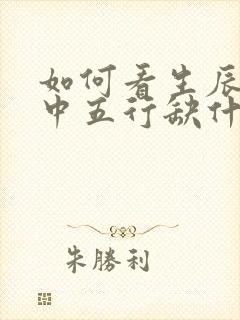 如何看生辰
中五行缺什
朱勝利